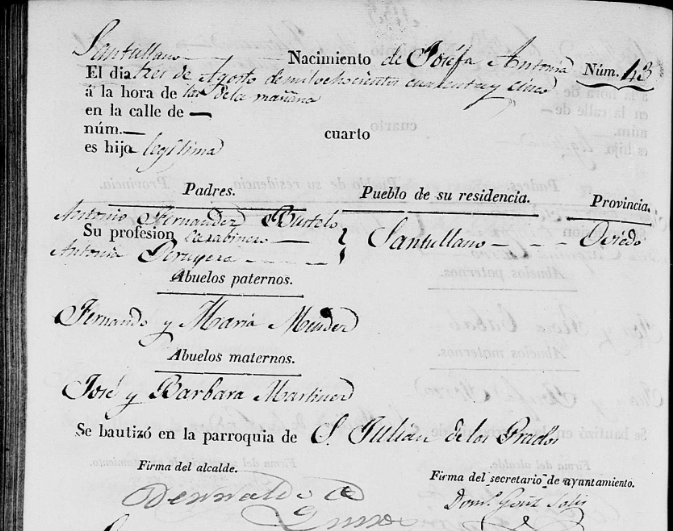 Santullano Nacimiento de Josefa Antonia Núm. 43
El dia tres de Agosto de mil ochocientos cuarenta y cinco
á la hora de las de la mañana
en la calle de —
núm. — cuarto
es hija legitima
Padres. Pueblo de su residencia. Provincia.
Antonio Fernandez Bustelo
Su profesion carabinero Santullano Oviedo
Antonia Pruyera
Abuelos paternos.
Fernando y Maria Mendez
Abuelos maternos.
José y Barbara Martinez
Se bautizó en la parroquia de S. Julian de los Prados
Firma del alcalde. Firma del secretario de ayuntamiento.